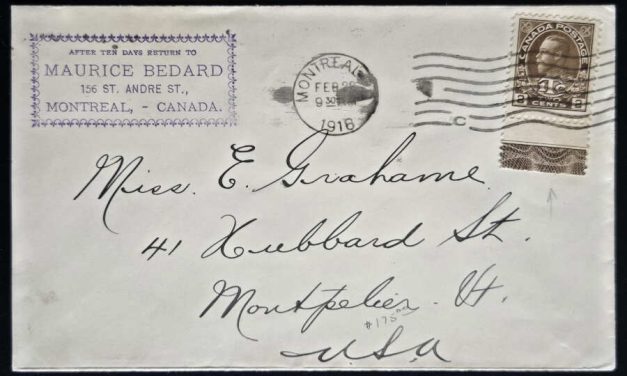 AFTER TEN DAYS RETURN TO
MAURICE BEDARD
156 ST. ANDRE ST.,
MONTREAL, - CANADA.
MONTREAL
FEB
1918
C
CANADA POSTAGE
2 CENTS 2
Miss. E. Grahame.
41 Hubbard St.
Montpelier. Vt.
U.S.A